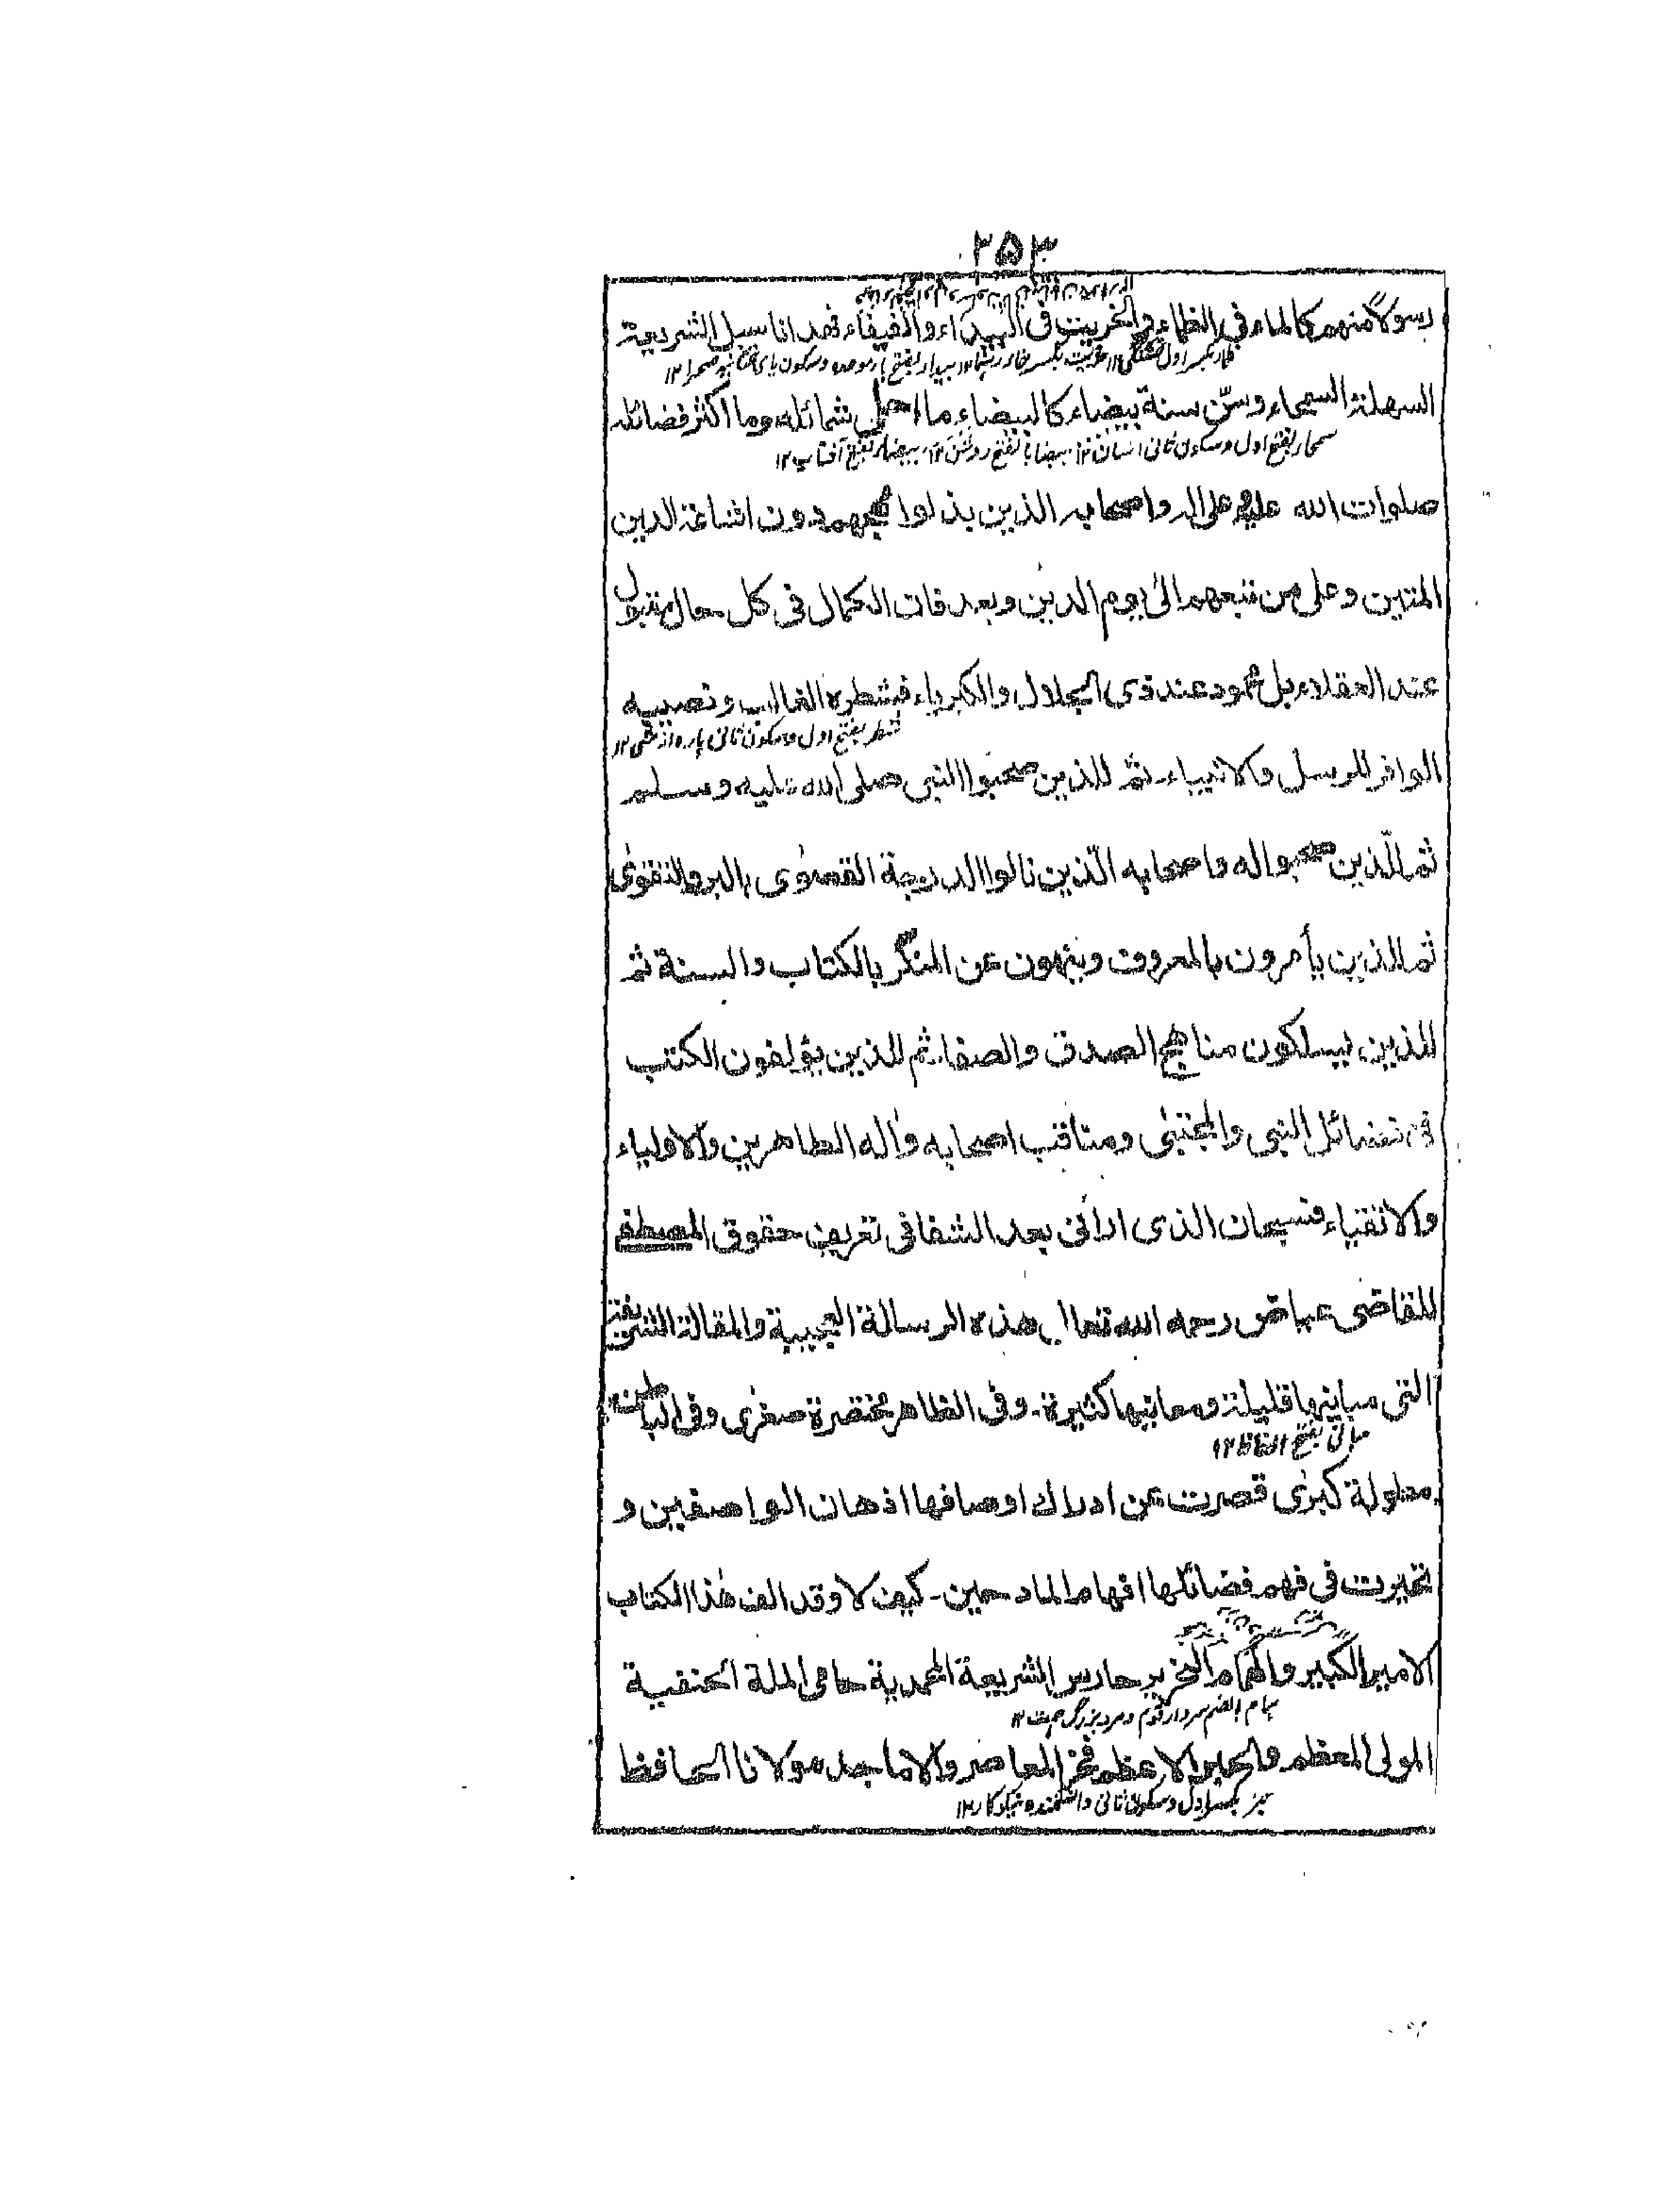 ۲۵۳
رسولا منهم كالماء فى الظماء والخريت فى البيداء والفيفاء فهدانا سبل الشريعة
السهلة السمحاء وسن سنة بيضاء كالبيضاء ما اجمل شمائله وما اكثر فضائله
سمحاء بفتح اول وسکون ثانی آسان ۱۲ بیضا بالفتح روشن ۱۲ بیضاء بفتح آفتاب ۱۲
صلوات الله عليه وعلى اله واصحابه الذين بذلوا مهجهم دون اشاعة الدين
المتين وعلى من تبعهم الىٰ يوم الدين وبعد فان الكمال فى كل حال مقبول
عند العقلاء بل محمود عند ذى الجلال والكبرياء فشطره الغالب ونصيبه
شطر بفتح اول وسکون ثانی پاره از شی ۱۲
الوافر للرسل والانبياء۔ ثم للذين صحبوا النبى صلى الله عليه وسلم
ثم للّذين صحبوا اله واصحابه الّذين نالوا الدرجة القصوٰى بالبر والتقوىٰ
ثم للذين يأمرون بالمعروف وينهون عن المنكر بالكتاب والسنة ثم
للذين يسلكون مناهج الصدق والصفا ثم للذين يؤلفون الكتب
فى فضائل النبى والمجتبىٰ ومناقب اصحابه واٰله الطاهرين والاولياء
والاتقياء فسبحان الذى ارانى بعد الشفا فى تعريف حقوق المصطفى
للقاضى عياض رحمه الله تعالى هذه الرسالة العجيبة والمقالة الشريفة
التى مبانيها قليلة ومعانيها كثيرة۔ وفى الظاهر مختصرة صغرى وفى الباطن
مبانی بفتح الفاظ ۱۲
مطولة كبرٰى قصرت عن ادراك اوصافها اذهان الواصفين و
تحيرت فى فهم فضائلها افهام المادحين۔ كيف لا وقد الف هٰذا الكتاب
الامير الكبير والهمام النحرير حارس الشريعة المحمدية حامى الملة الحنفية
همام بالضم سردار قوم و مرد بزرگ همت ۱۲
المولى المعظم والحبر الاعظم فخر المعاصر والاماجد مولانا الحافظ
حبر بکسر اول وسکون ثانی دانشمند و نیکوکار ۱۲